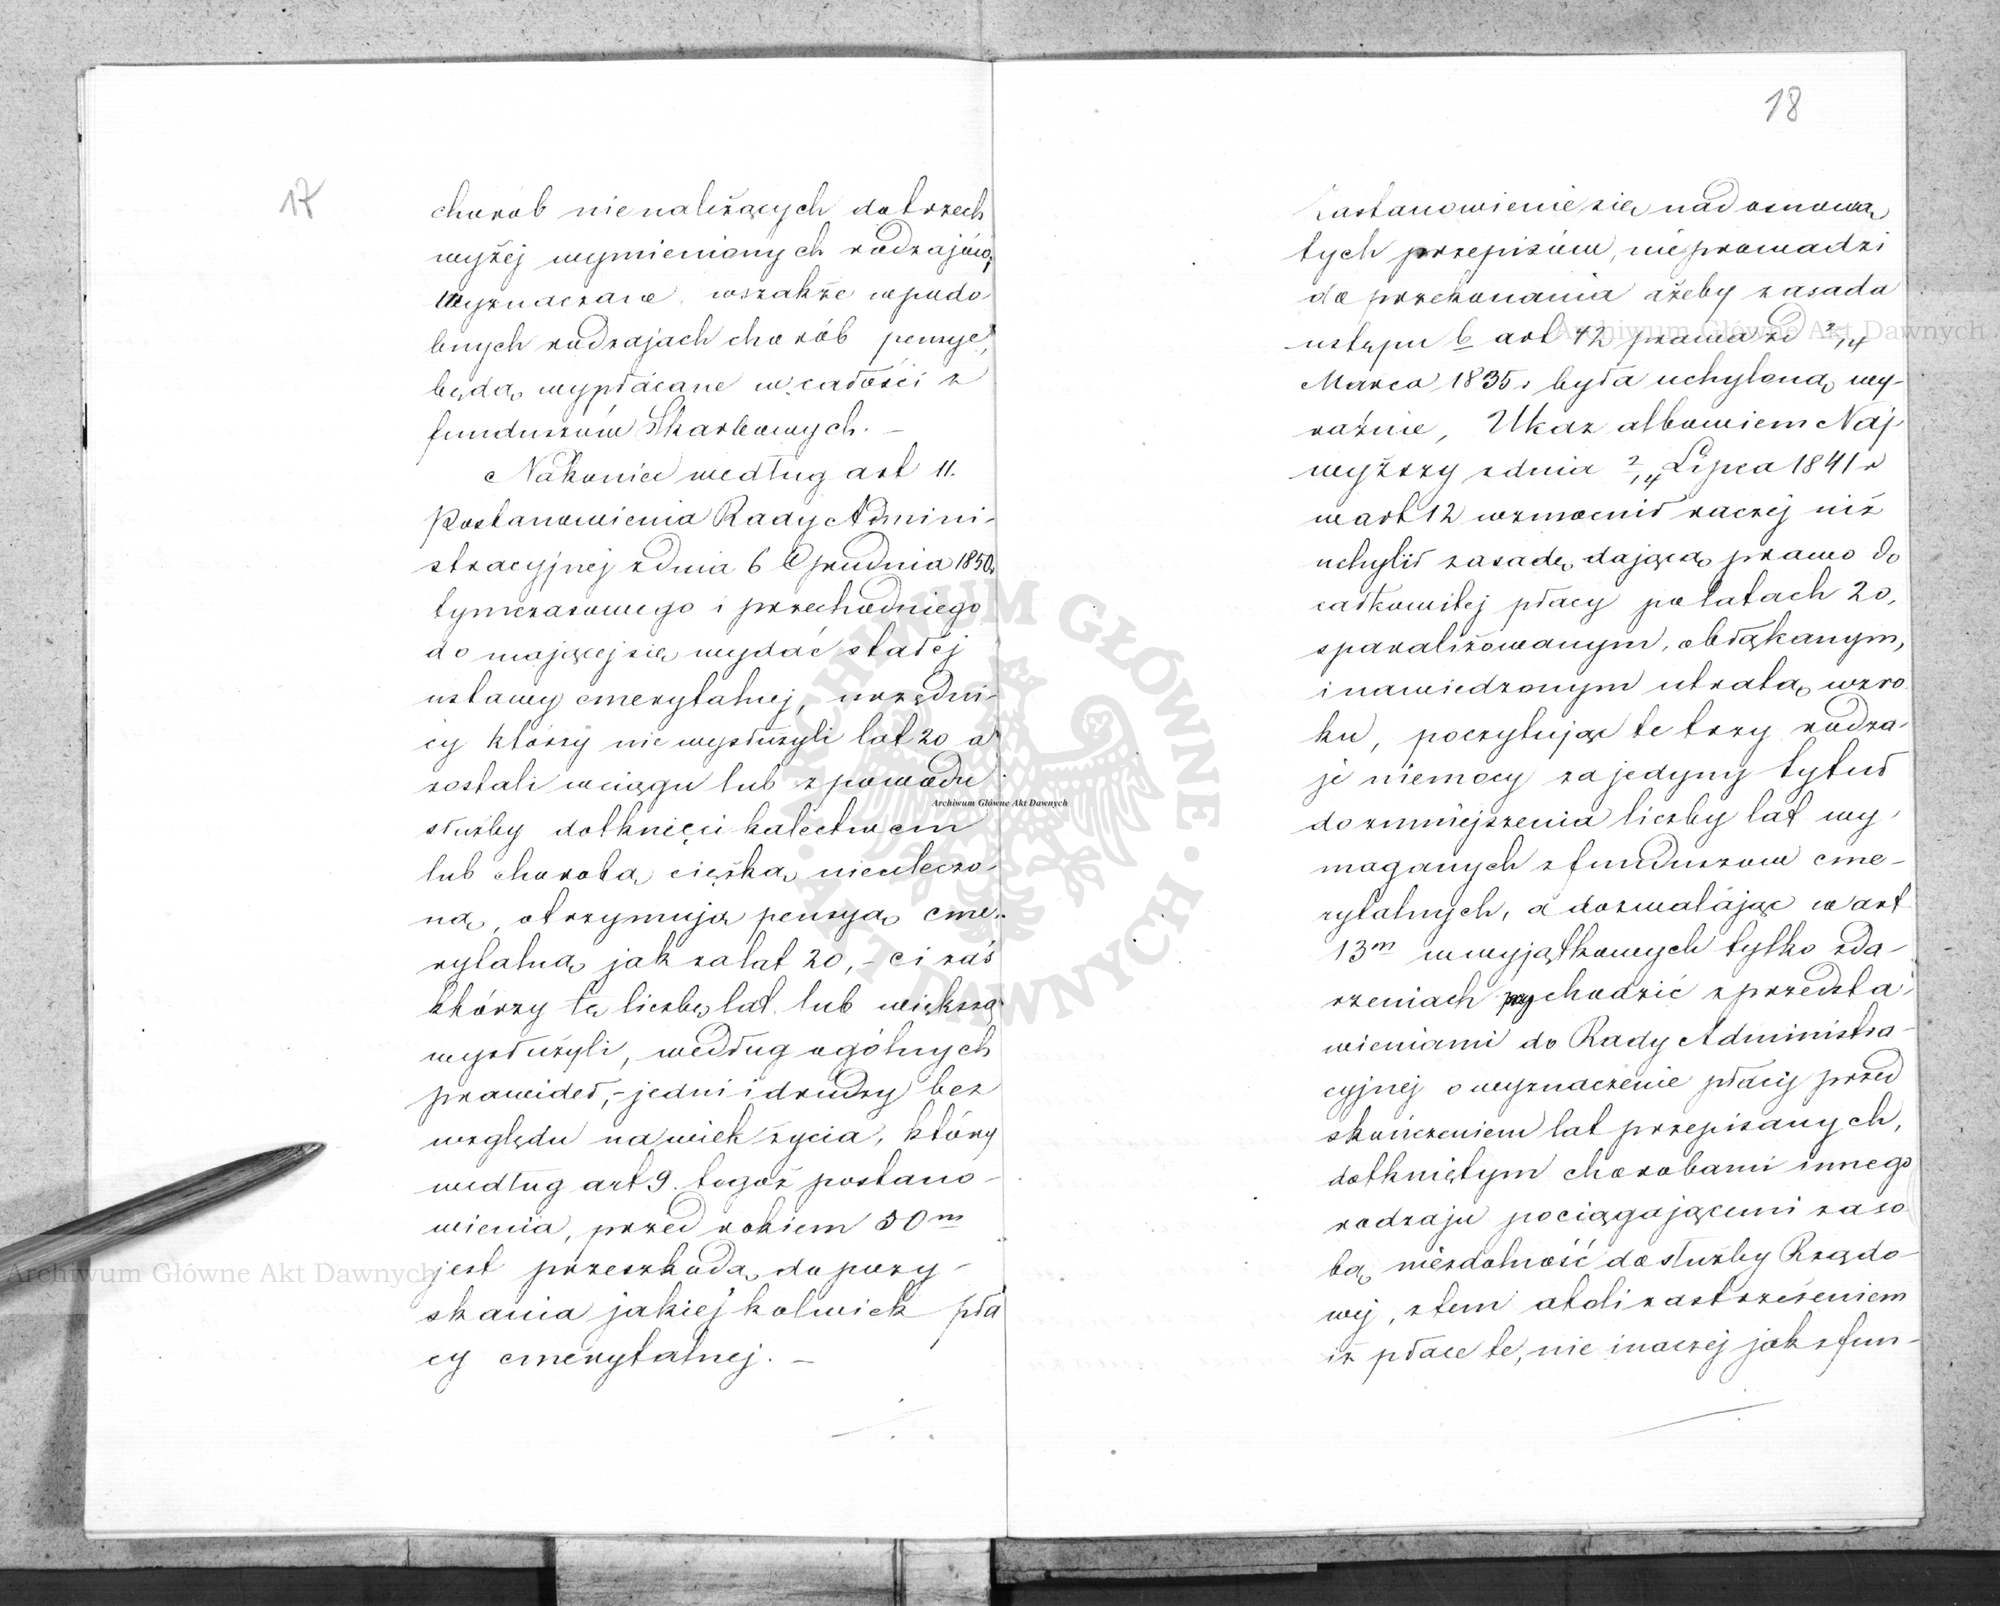 17
chorób nienależących do trzech
wyżej wymienionych rodzajów,
wyznaczane wszakże w podo-
bnych rodzajach chorób pensye,
będą wypłacane w całości z
funduszów Skarbowych. –
Nakoniec według art 11.
Postanowienia Rady Admini-
stracyjnej z dnia 6 Grudnia 1850r
tymczasowego i przechodniego
do mającej się wydać stałéj
ustawy emerytalnej, urzędni-
cy którzy nie wysłużyli lat 20 a
zostali wciągu lub z powodu
służby dotknięci kalectwem
lub chorobą ciężką nieuleczo-
ną, otrzymują pensyą eme-
rytalną jak za lat 20, – ci zaś
którzy tę liczbę lat lub większą
wysłużyli, według ogólnych
prawideł, – jedni i drudzy bez
względu na wiek życia, który
według art 9. tegoż postano-
wienia, przed rokiem 50m
jest przeszkodą do pozy-
skania jakiejkolwiek pła
cy emerytalnej. –
18
Zastanowienie się nad osnową
tych przepisów, nie prowadzi
do przekonania ażeby zasada
ustępu b art 42 prawa zd 2/14
Marca 1835r była uchyloną wy-
raźnie, Ukaz albowiem Naj-
wyższy z dnia 2/14 Lipca 1841 r
w art 12 wzmocnił raczej niż
uchylił zasadę dającą prawo do
całkowitej płacy po latach 20,
sparaliżowanym, obłąkanym,
i nawiedzonym utratą wzro
ku, poczytując te trzy rodza-
je niemocy za jedyny tytuł
do zmniejszenia liczby lat wy-
maganych z funduszow eme-
rytalnych, a dozwalając w art
13m w wyjątkowych tylko zda-
rzeniach wychodzić z przedsta-
wieniami do Rady Administra-
cyjnej o wyznaczenie płacy przed
skończeniem lat przepisanych,
dotkniętym chorobami innego
rodzaju pociągającemi za so
bą niezdolność do służby Rządo-
wej, z tem atoli zastrzeżeniem
iż płace te, nie inaczej jak z fun-
Archiwum Główne Akt Dawnych
Archiwum Główne Akt Dawnych
Archiwum Główne Akt Dawnych
ARCHIWUM GŁÓWNE AKT DAWNYCH